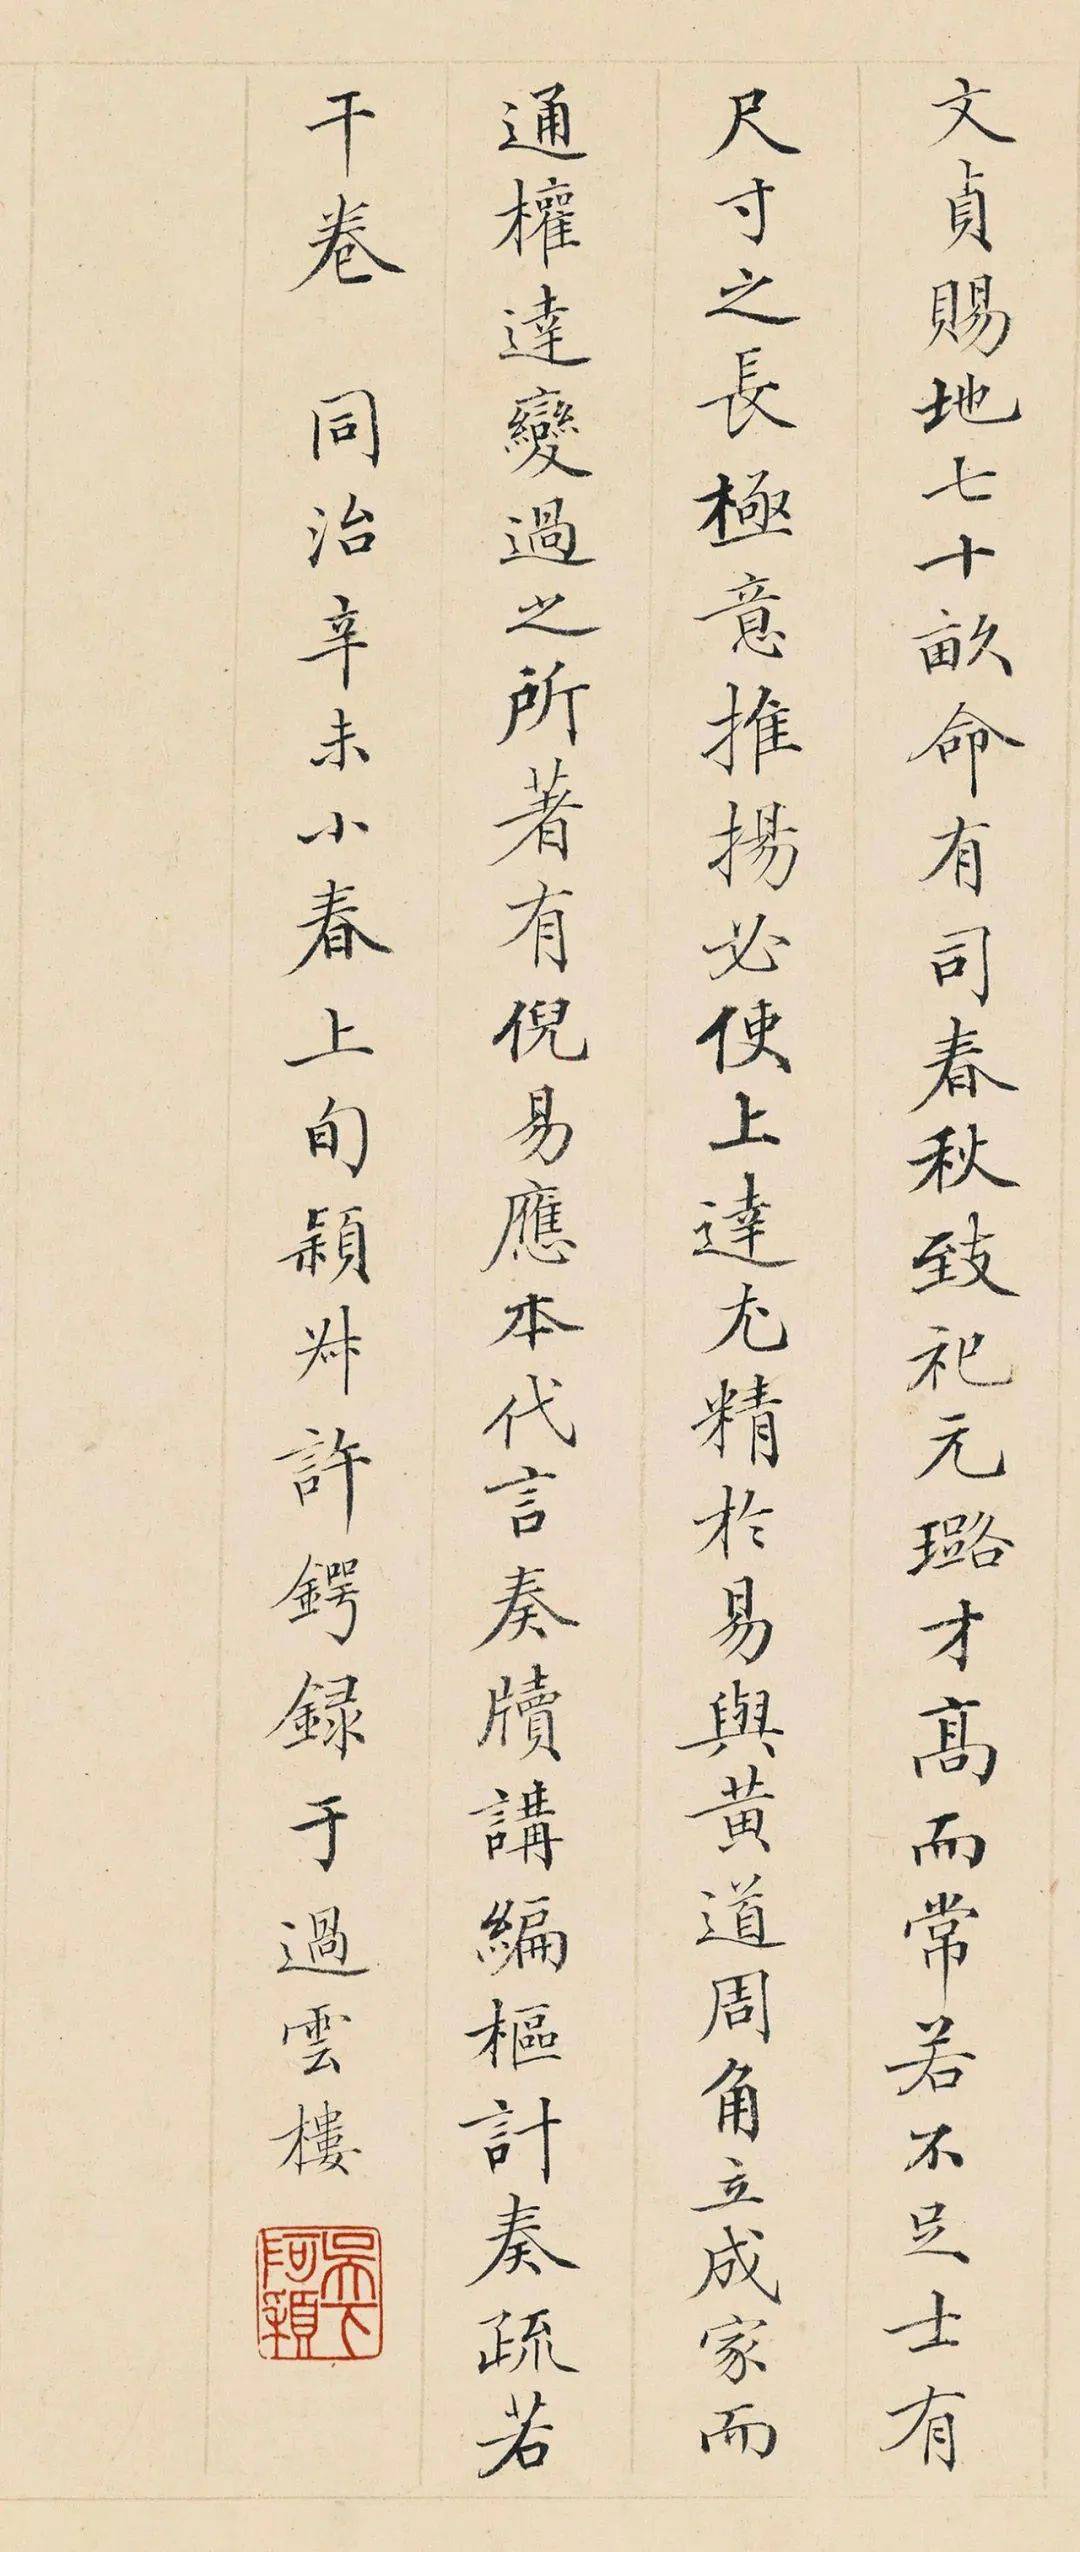 文貞賜地七十畝命有司春秋致祀元璐才高而常若不足士有
尺寸之長極意推揚必使上達尤精於易與黃道周角立成家而
通權達變過之所著有倪易應本代言奏牘講編樞計奏疏若
干卷　同治辛未小春上旬穎叔許鍔録于過雲樓
吳下阿穎